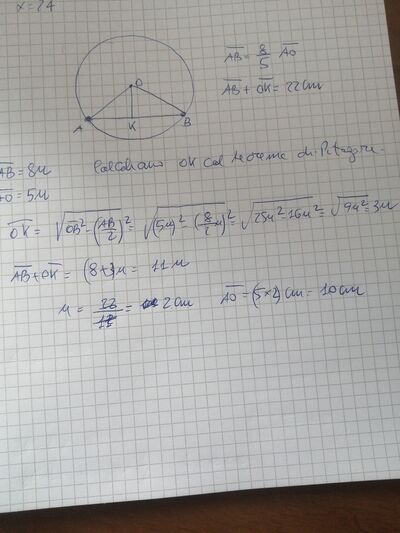 x=24
O
A
K
B
AB = 8/5 AO
AB + OK = 22 cm
AB = 8u
AO = 5u
Calcoliamo OK col teorema di Pitagora.
OK = √OB² - (AB/2)² = √(5u)² - (8/2 u)² = √25u² - 16u² = √9u² = 3u
AB + OK = (8+3)u = 11u
u = 22/11 = 2 cm
AO = (5×2) cm = 10 cm